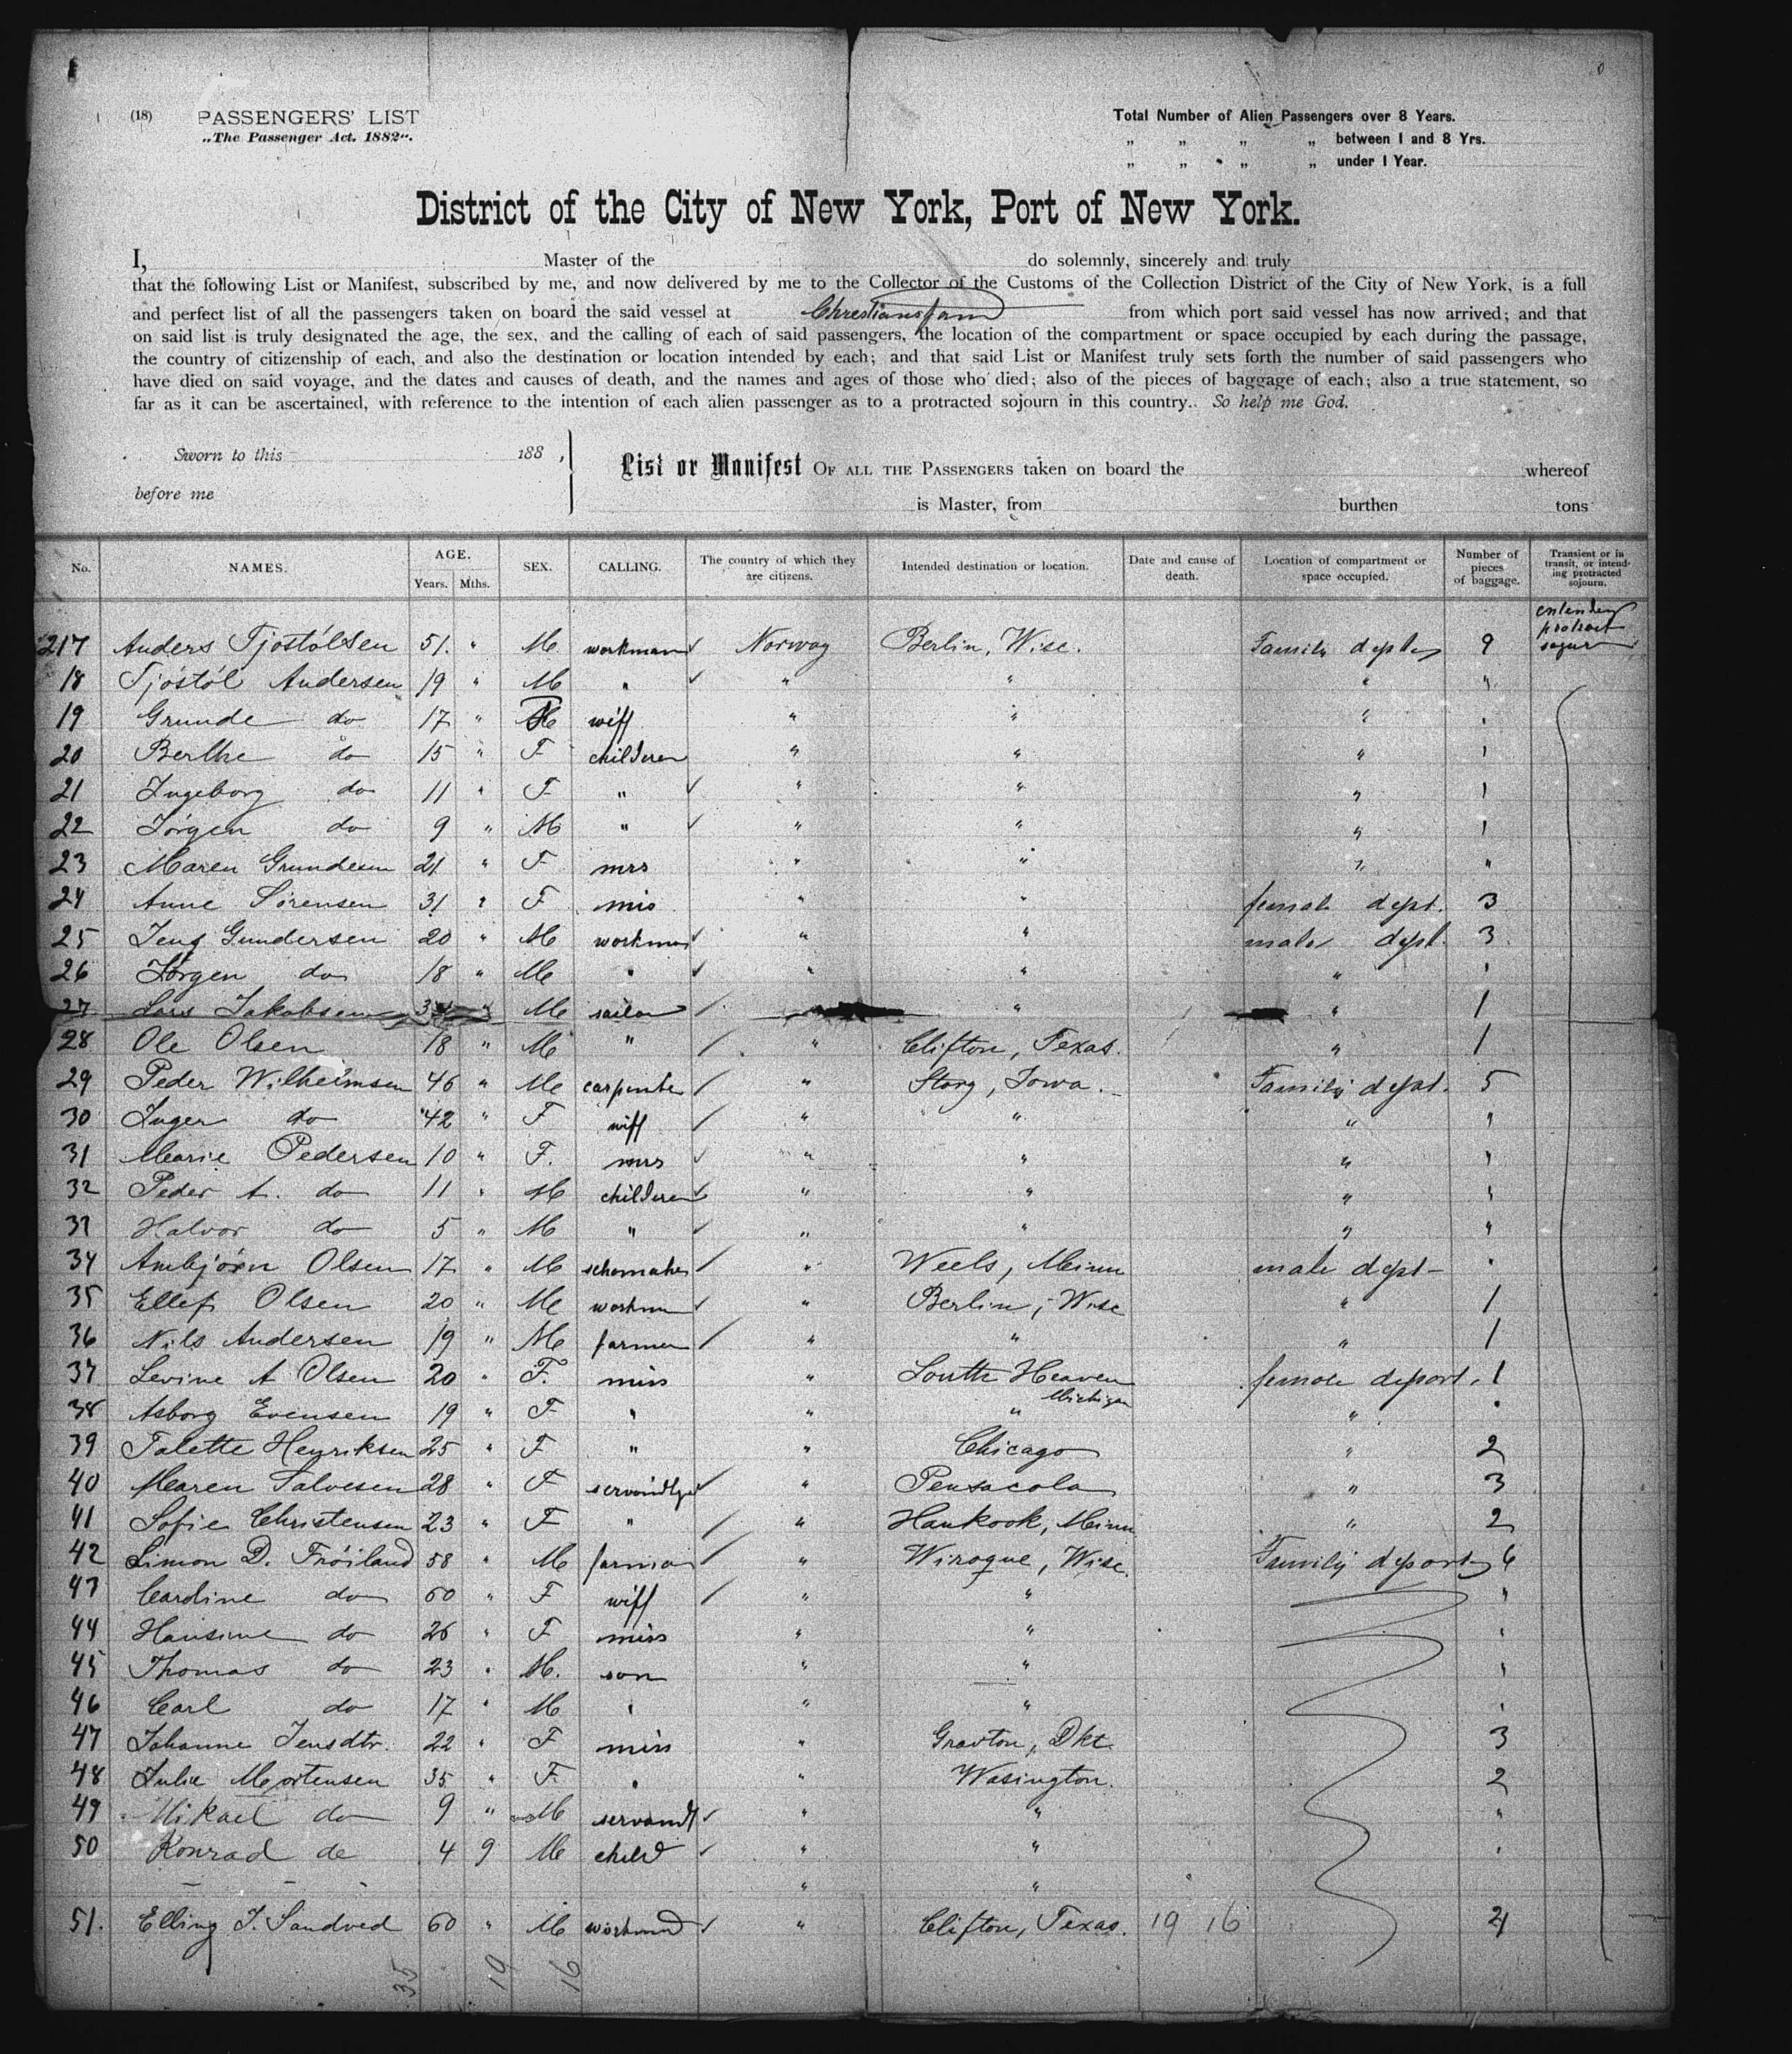 (18) PASSENGERS' LIST
„The Passenger Act. 1882“.
Total Number of Alien Passengers over 8 Years.
„ „ „ „ between 1 and 8 Yrs.
„ „ „ „ under 1 Year.
District of the City of New York, Port of New York.
I, Master of the do solemnly, sincerely and truly
that the following List or Manifest, subscribed by me, and now delivered by me to the Collector of the Customs of the Collection District of the City of New York, is a full
and perfect list of all the passengers taken on board the said vessel at Christiansand from which port said vessel has now arrived; and that
on said list is truly designated the age, the sex, and the calling of each of said passengers, the location of the compartment or space occupied by each during the passage,
the country of citizenship of each, and also the destination or location intended by each; and that said List or Manifest truly sets forth the number of said passengers who
have died on said voyage, and the dates and causes of death, and the names and ages of those who died; also of the pieces of baggage of each; also a true statement, so
far as it can be ascertained, with reference to the intention of each alien passenger as to a protracted sojourn in this country. So help me God.
Sworn to this 188 ,
before me
List or Manifest OF ALL THE PASSENGERS taken on board the whereof
is Master, from burthen tons
No. NAMES. AGE. Years. Mths. SEX. CALLING. The country of which they are citizens. Intended destination or location. Date and cause of death. Location of compartment or space occupied. Number of pieces of baggage. Transient or in transit, or intending protracted sojourn.
217 Anders Tjostólsen 51 " M workman Norway Berlin, Wisc. Family dept 9
18 Tjóstól Andersen 19 " M " " " " "
19 Grunde do 17 " wiff " " "
20 Berthe do 15 " F childeren " " " "
21 Ingeborg do 11 " F " " " " "
22 Jörgen do 9 " M " " " " "
23 Maren Grundesen 21 " F mrs " " " "
24 Anne Sörensen 31 " F mis " " female dept. 3
25 Jens Gundersen 20 " M workman " " male dept. 3
26 Jörgen do 18 " M " " " " "
27 Lars Jakobsen M sailor " " 1
28 Ole Olsen 18 " M " " Clifton, Texas. " 1
29 Peder Wilhelmsen 46 " M carpenter " Story, Iowa. Family dept. 5
30 Inger do 42 " F wiff " " " "
31 Marie Pedersen 10 " F. mrs " " " "
32 Peder A. do 11 " M childeren " " " "
33 Halvor do 5 " M " " " " "
34 Anbjörn Olsen 17 " M schomaker " Weels, Minn male dept "
35 Ellef Olsen 20 " M workman " Berlin, Wisc " 1
36 Nils Andersen 19 " M farmer " " " 1
37 Levine A Olsen 20 " F. miss " South Heaven Michigan female deport. 1
38 Asborg Evensen 19 " F " " " " "
39 Talette Henriksen 25 " F " " Chicago " 2
40 Maren Salvesen 28 " F " Pensacola " 3
41 Sofie Christensen 23 " F " " Hankook, Minn " 2
42 Simon D. Fröiland 58 " M farmer " Wiroque, Wisc. Family deport 6
43 Caroline do 60 " F wiff " " "
44 Hansine do 26 " F miss " " "
45 Thomas do 23 " M. son " " "
46 Carl do 17 " M " " " "
47 Johanne Jensdtr. 22 " F miss " Gravton, Dkt. 3
48 Julie Mortensen 35 " F " " Wasington. 2
49 Mikael do 9 " M servandt " " "
50 Konrad do 4 9 M child " " "
" "
51. Elling J. Sandved 60 " M workmand " Clifton, Texas. 19 16 4
35 19 16